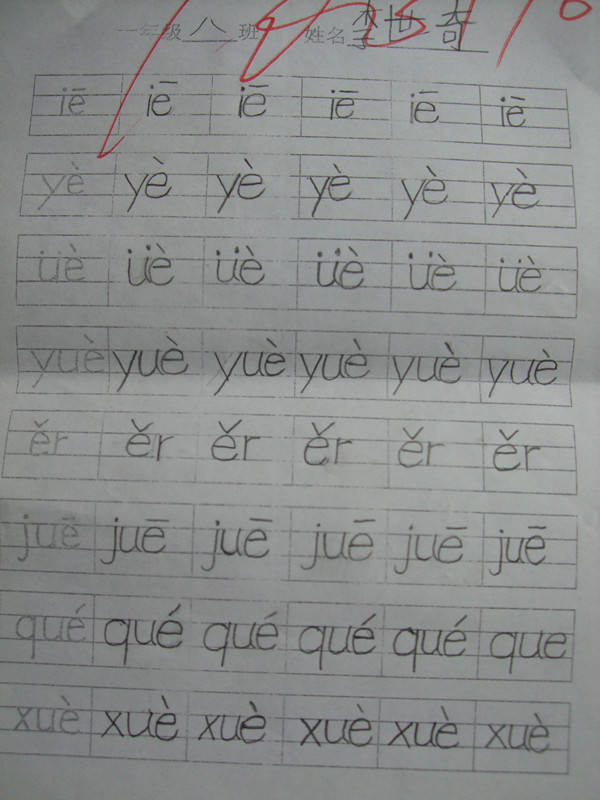 一年级 八 班 姓名 李世奇
iē iē iē iē iē iē
yè yè yè yè yè yè
üè üè üè üè üè üè
yuè yuè yuè yuè yuè yuè
ěr ěr ěr ěr ěr ěr
juē juē juē juē juē juē
qué qué qué qué qué que
xuè xuè xuè xuè xuè xuè